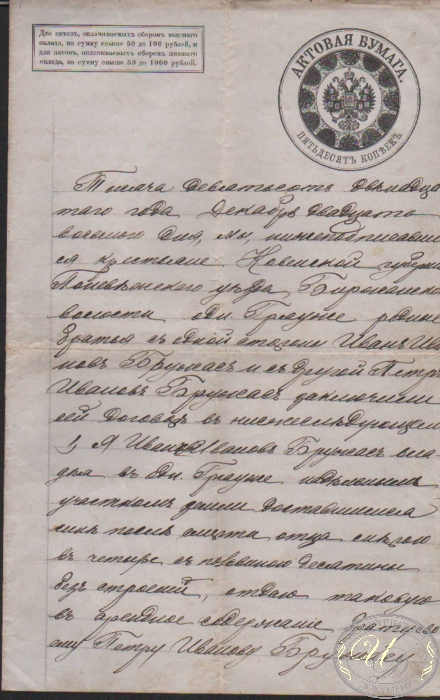 Для актовъ, оплачиваемыхъ сборомъ высшаго
оклада, на сумму свыше 50 до 100 рублей, и
для актовъ, оплачиваемыхъ сборомъ низшаго
оклада, на сумму свыше 50 до 1000 рублей.
АКТОВАЯ БУМАГА.
ПЯТЬДЕСЯТЪ КОПѢЕКЪ.
Тысяча девятьсотъ двѣнадца
таго года Декабря двадцать
восьмого дня, мы, нижеподписавші
ся крестьяне Ковенской губерн
Поневѣжскаго уѣзда Биржанско
волости, родные
братья съ одной стороны Иванъ Ива
новъ Бружасъ и съ другой Петръ
Ивановъ Бружасъ заключили
сей договоръ въ нижеслѣдующемъ
1, Я Иванъ Ивановъ Бружасъ вла
дѣя въ надѣльнымъ
участкомъ земли доставшимся
мнѣ послѣ смерти отца мѣрою
въ четыре съ половиною десятины
безъ строеній, отдаю таковую
въ арендное содержаніе брату сво
ему Петру Иванову Бружасу